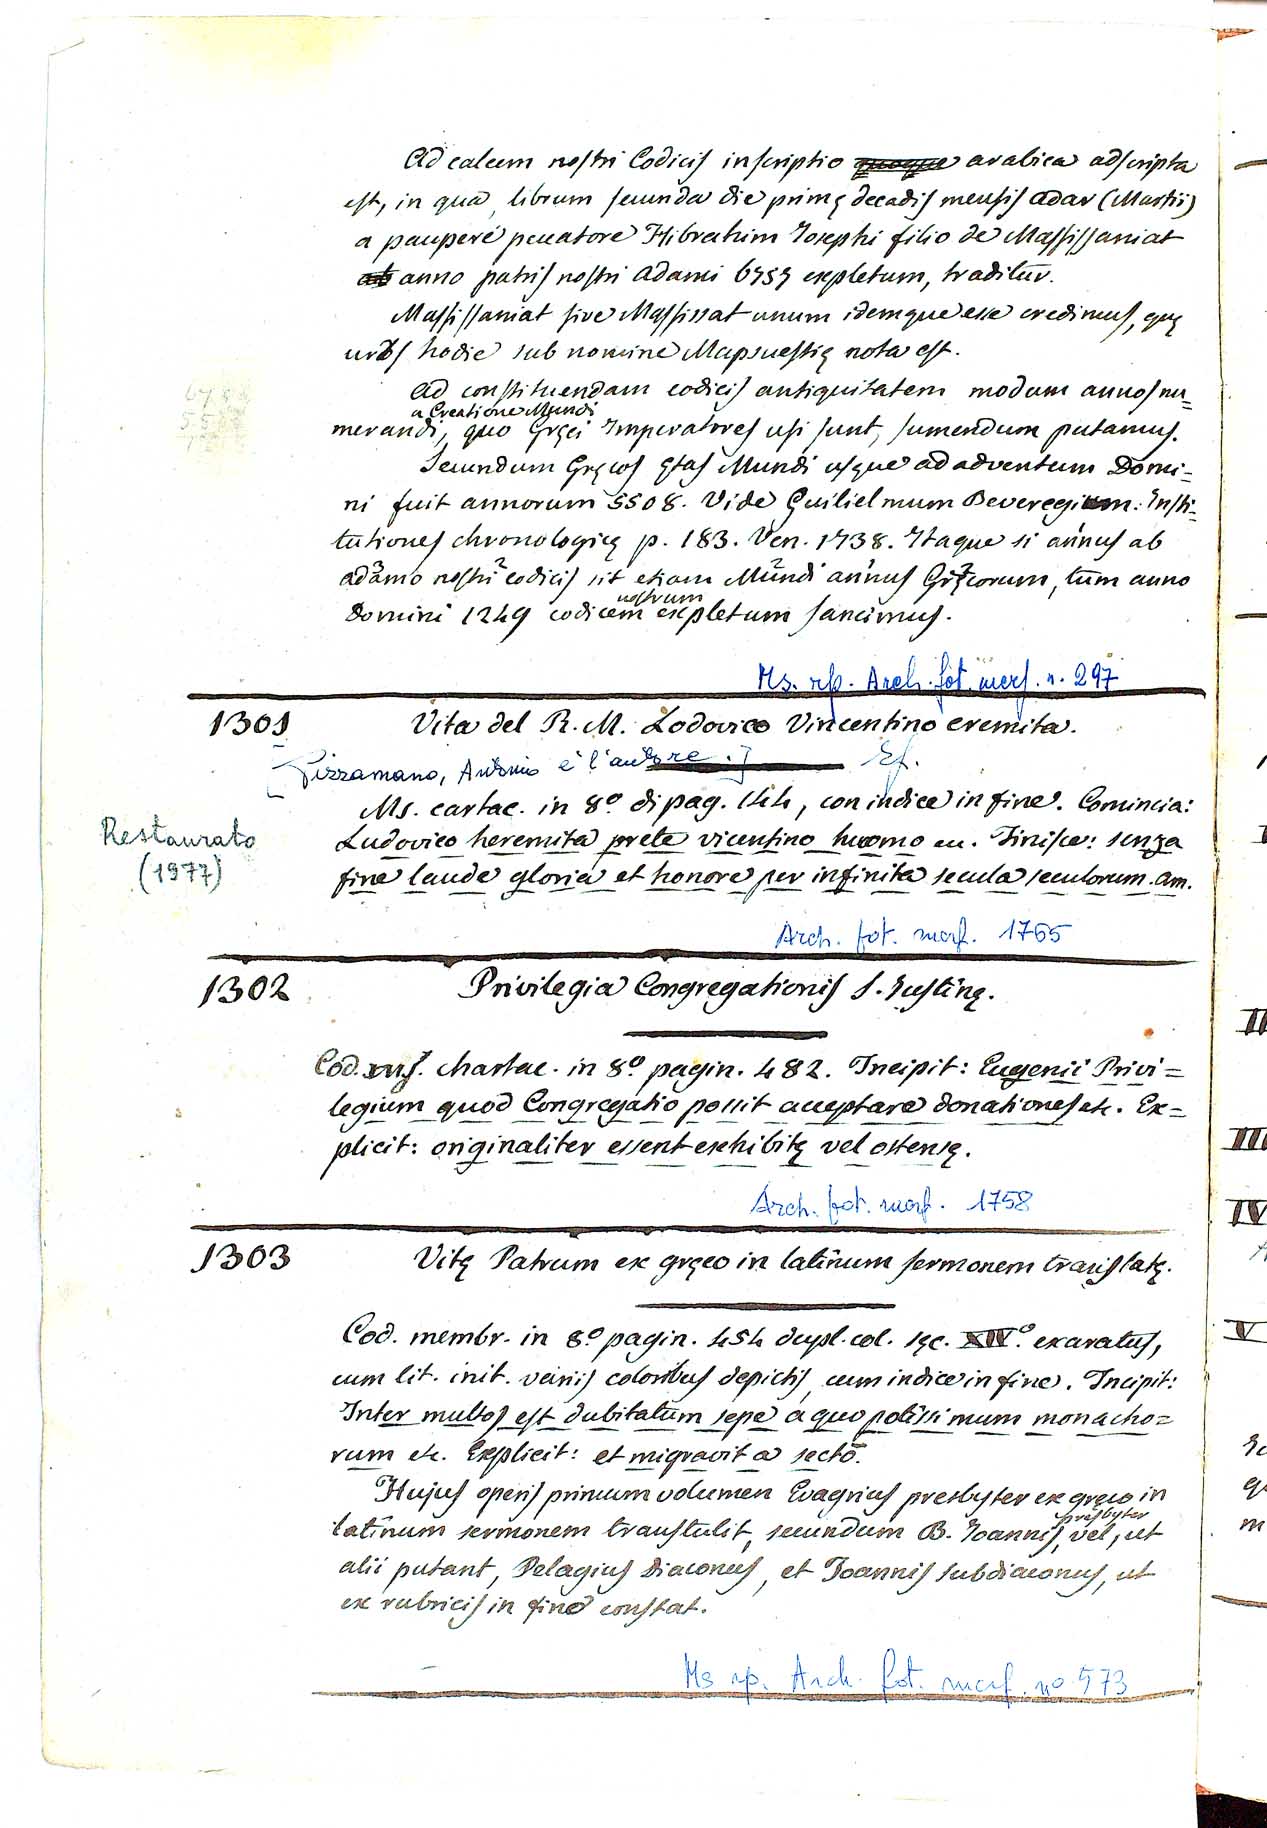 Ad calcem nostri Codicis inscriptio arabica adscripta
est, in qua, librum secunda die primę decadis mensis adar (Martii)
a paupere peccatore Hibrahim Josephi filio de Massissaniat
anno patris nostri Adami 6757 expletum, traditur.
Massissaniat sive Massissat unum idemque esse credimus, quę
urbs hodie sub nomine Mapsuestię nota est.
Ad constituendam codicis antiquitatem modum annos nu=
a Creatione Mundi
merandi, quo Gręci Imperatores usi sunt, sumendum putamus.
Secundum Gręcos ętas Mundi usque ad adventum Domi-
ni fuit annorum 5508. Vide Guilielmum Beveregium: Insti=
tutiones chronologicę p. 183. Ven. 1738. Itaque si annus ab
adamo nostri codicis sit etiam Mundi annus Gręcorum, tum anno
nostrum
Domini 1249 codicem expletum sancimus.
Ms. rip. Arch. fot. marf. n. 297
1301 Vita del R. M. Lodovico Vincentino eremita.
[Pizzamano, Antonio è l'autore.]
Ms. cartac. in 8º di pag. 144, con indice in fine. Comincia:
Ludovico heremita prete vicentino huomo ec. Finisce: senza
fine laude gloria et honore per infinita secula seculorum. am.
Restaurato
(1977)
Arch. fot. marf. 1765
1302 Privilegia Congregationis S. Justinę.
Cod. chartac. in 8º pagin. 482. Incipit: Eugenii Privi=
legium quod Congregatio possit acceptare donationes etc. Ex=
plicit: originaliter essent exhibitę vel ostensę.
Arch. fot. marf. 1758
1303 Vitę Patrum ex gręco in latinum sermonem translatę.
Cod. membr. in 8º pagin. 454 dupl. col. sęc. XIVº. exaratus,
cum lit. init. variis coloribus depictis, cum indice in fine. Incipit:
Inter multos est dubitatum sepe a quo potissimum monacho=
rum etc. Explicit: et migravit a sectō.
Hujus operis primum volumen Evagrius presbyter ex gręco in
presbyter
latinum sermonem transtulit, secundum B. Joannis, vel, ut
alii putant, Pelagius diaconus, et Joannis subdiaconus, ut
ex rubricis in fine constat.
Ms rip. Arch. fot. marf. nº 573
II
III
IV
V